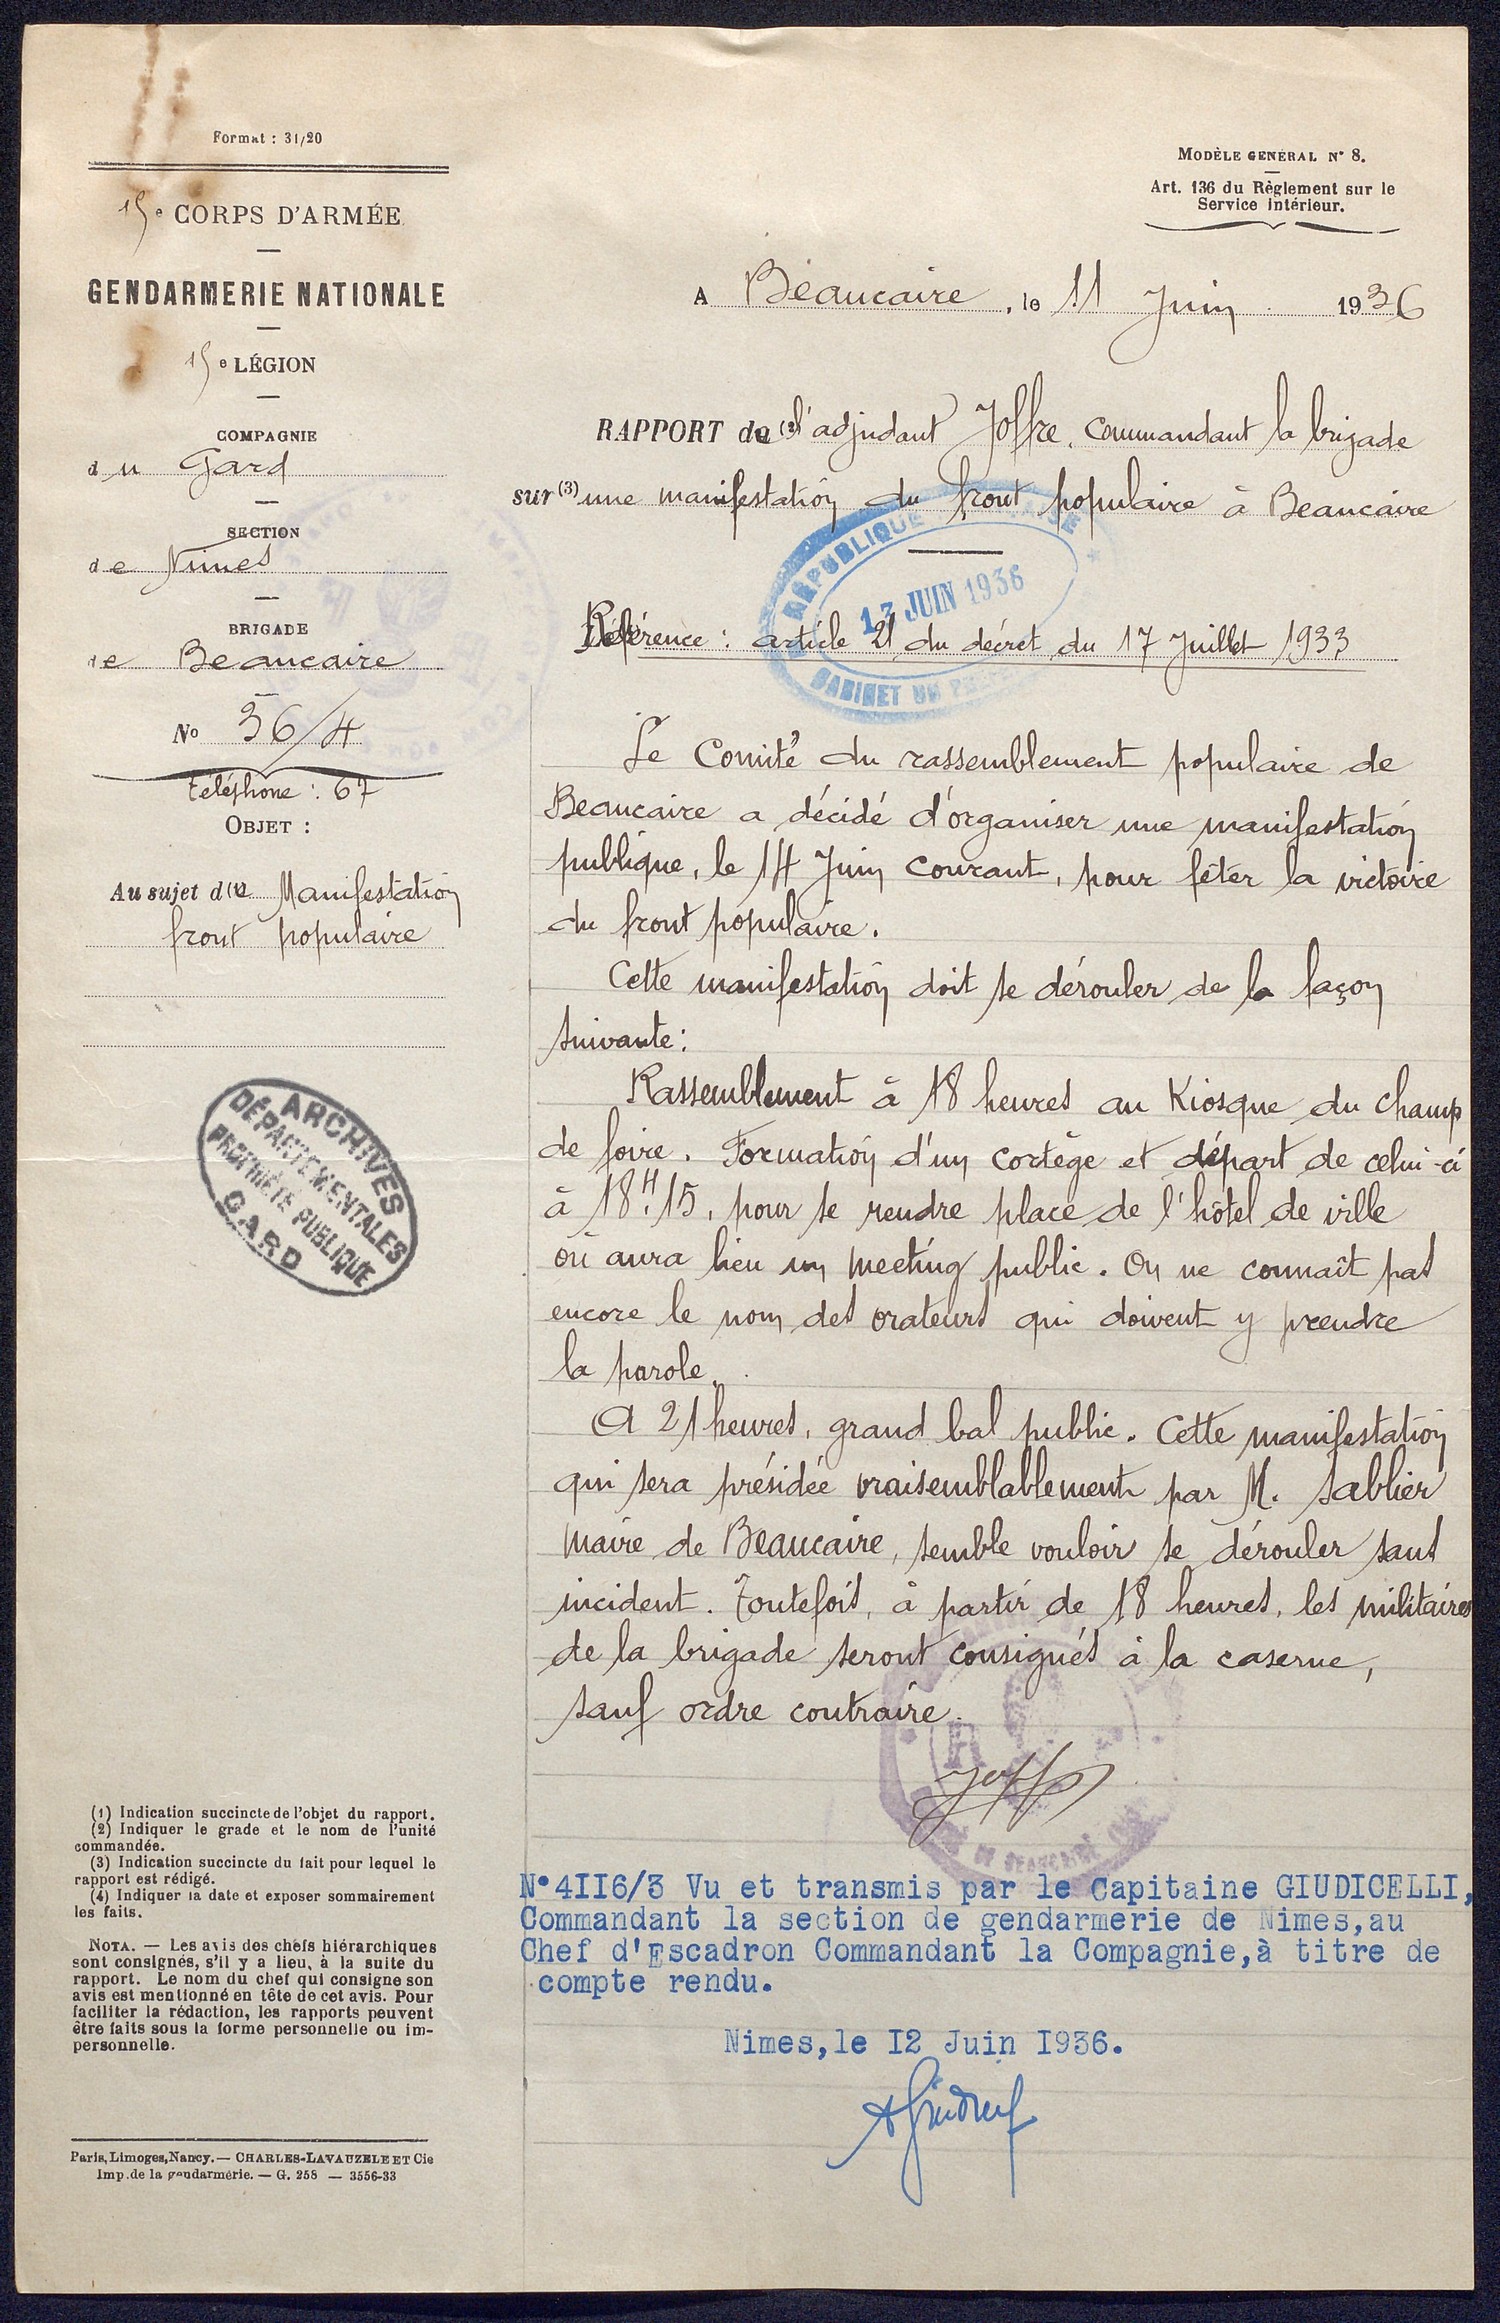 Format : 31/20
15e CORPS D'ARMÉE
GENDARMERIE NATIONALE
15e LÉGION
COMPAGNIE
du Gard
SECTION
de Nimes
BRIGADE
de Beaucaire
No 36/4
Téléphone : 67
OBJET :
Au sujet d(1)e Manifestation
front populaire
ARCHIVES
DÉPARTEMENTALES
PROPRIÉTÉ PUBLIQUE
GARD
(1) Indication succincte de l'objet du rapport.
(2) Indiquer le grade et le nom de l'unité
commandée.
(3) Indication succincte du fait pour lequel le
rapport est rédigé.
(4) Indiquer la date et exposer sommairement
les faits.
NOTA. — Les avis des chefs hiérarchiques
sont consignés, s'il y a lieu, à la suite du
rapport. Le nom du chef qui consigne son
avis est mentionné en tête de cet avis. Pour
faciliter la rédaction, les rapports peuvent
être faits sous la forme personnelle ou im-
personnelle.
Paris, Limoges, Nancy. — CHARLES-LAVAUZELLE ET Cie
Imp. de la gendarmerie. — G. 258 — 3556-33
MODÈLE GÉNÉRAL N° 8.
Art. 136 du Règlement sur le
Service intérieur.
A Beaucaire, le 11 Juin 1936
RAPPORT de (2) l'adjudant Joffre, commandant la brigade
sur (3) une manifestation du front populaire à Beaucaire
RÉPUBLIQUE
13 JUIN 1936
CABINET DU
Référence : article 21 du décret du 17 Juillet 1933
Le Comité du rassemblement populaire de
Beaucaire a décidé d'organiser une manifestation
publique, le 14 Juin courant, pour fêter la victoire
du front populaire.
Cette manifestation doit se dérouler de la façon
suivante:
Rassemblement à 18 heures au Kiosque du champ
de foire. Formation d'un cortège et départ de celui-ci
à 18H.15, pour se rendre place de l'hôtel de ville
où aura lieu un meeting public. On ne connaît pas
encore le nom des orateurs qui doivent y prendre
la parole.
A 21 heures, grand bal public. Cette manifestation
qui sera présidée vraisemblablement par M. Sablier
maire de Beaucaire, semble vouloir se dérouler sans
incident. Toutefois, à partir de 18 heures, les militaires
de la brigade seront consignés à la caserne,
sauf ordre contraire.
Joffre
N°4II6/3 Vu et transmis par le Capitaine GIUDICELLI,
Commandant la section de gendarmerie de Nimes,au
Chef d'Escadron Commandant la Compagnie,à titre de
compte rendu.
Nimes,le I2 Juin I936.